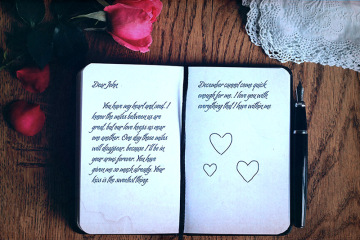 Dear John,
You have my heart and soul. I
know the miles between us are
great, but our love keeps us near
one another. One day these miles
will disappear, because I'll be in
your arms forever. You have
given me so much already. Your
kiss is the sweetest thing.
December cannot come quick
enough for me. I love you with
everything that I have within me